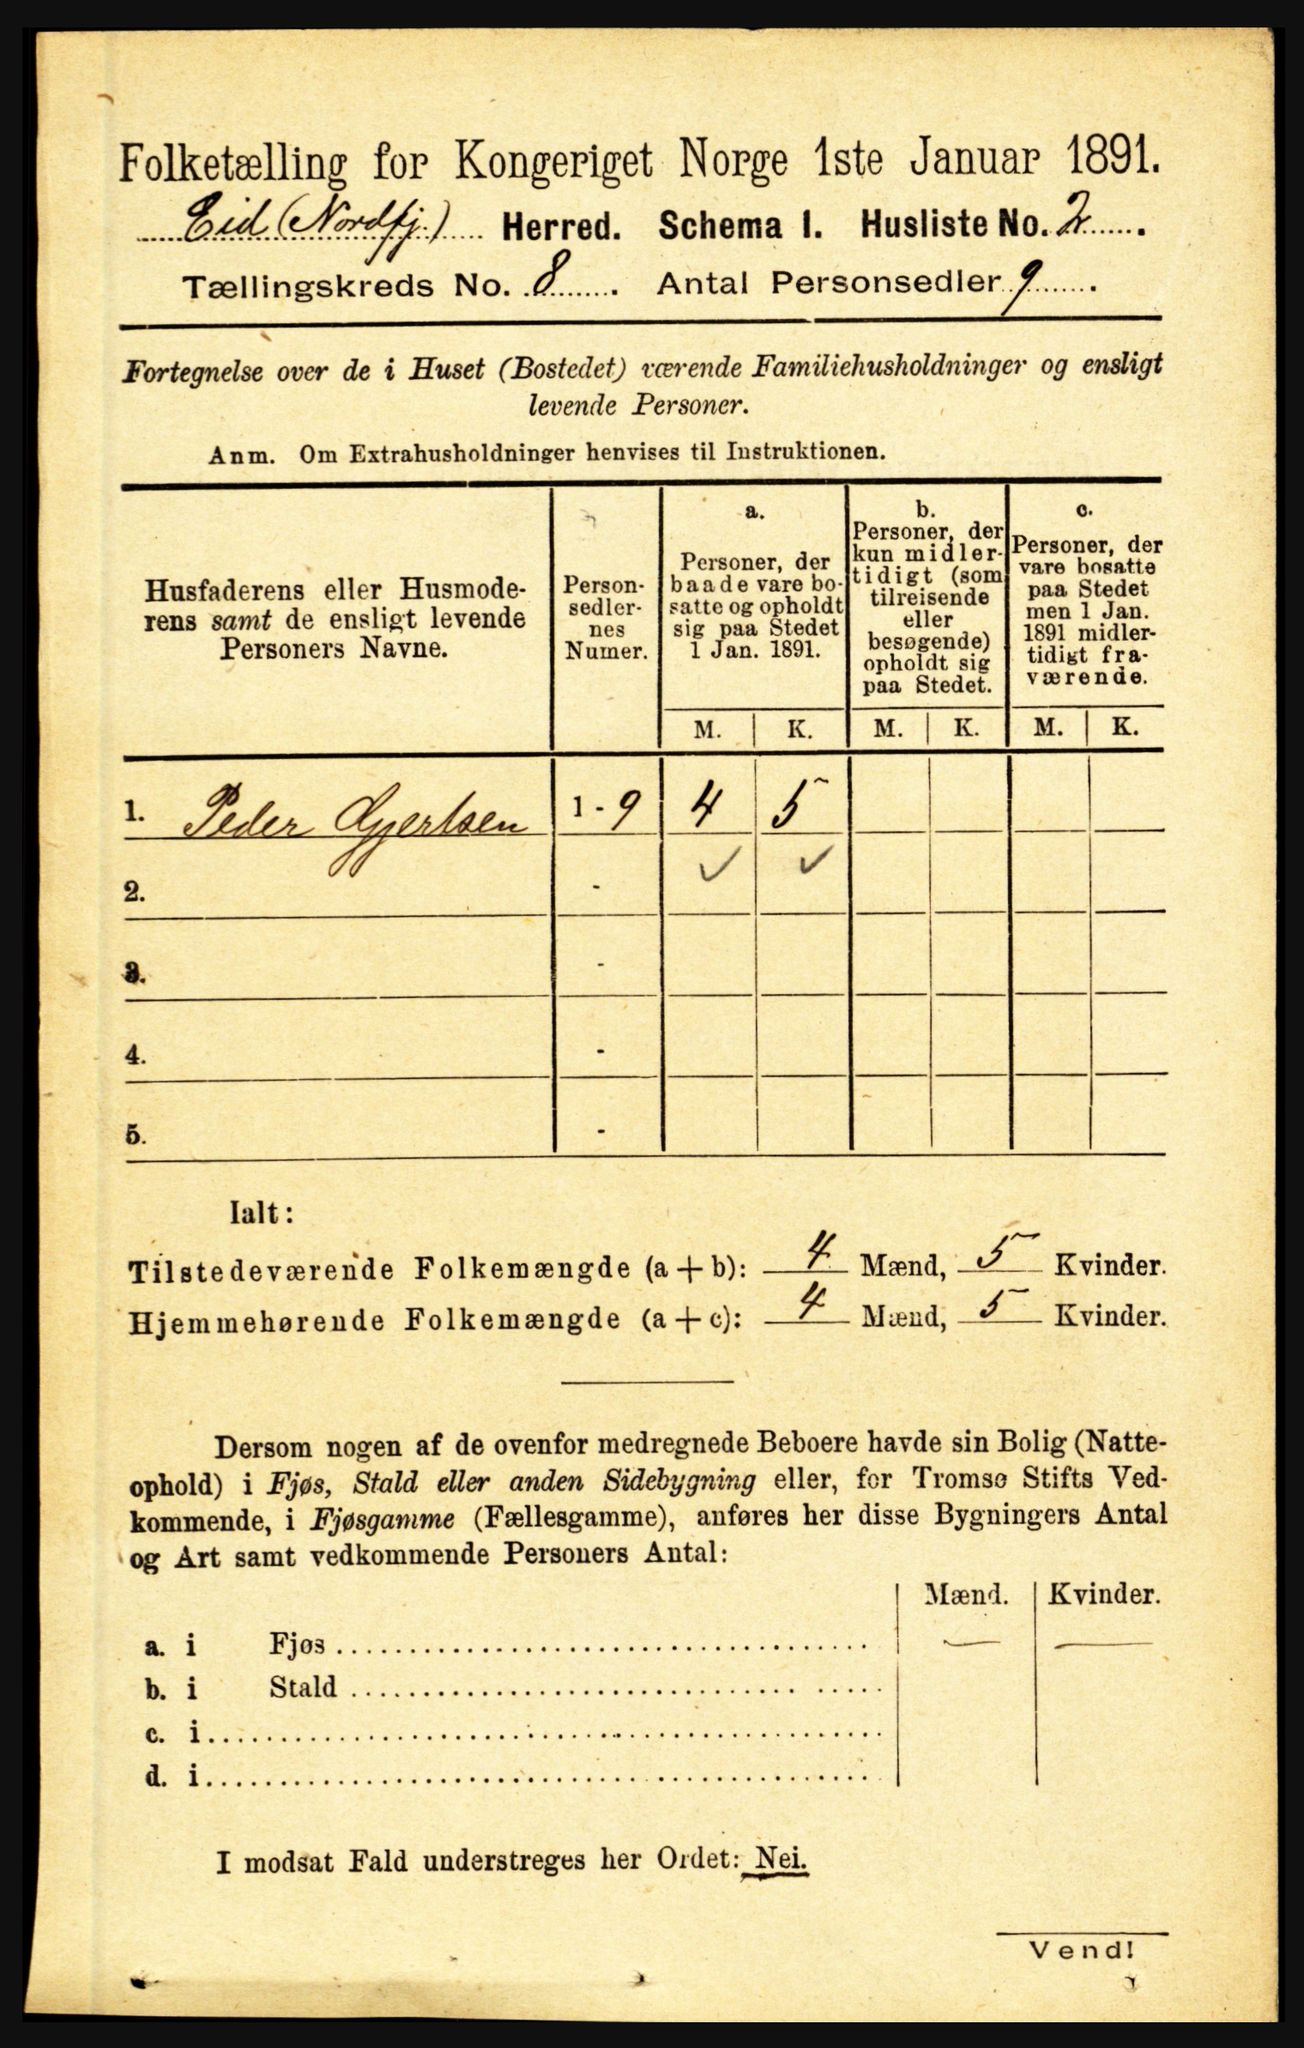 Folketælling for Kongeriget Norge 1ste Januar 1891.
Eid (Nordfj.) Herred. Schema I. Husliste No. 2.
Tællingskreds No. 8. Antal Personsedler 9.
Fortegnelse over de i Huset (Bostedet) værende Familiehusholdninger og ensligt
levende Personer.
Anm. Om Extrahusholdninger henvises til Instruktionen.
Husfaderens eller Husmode-
rens samt de ensligt levende
Personers Navne.
Person-
sedler-
nes
Numer.
a.
Personer, der
baade vare bo-
satte og opholdt
sig paa Stedet
1 Jan. 1891.
b.
Personer, der
kun midler-
tidigt (som
tilreisende
eller
besøgende)
opholdt sig
paa Stedet.
c.
Personer, der
vare bosatte
paa Stedet
men 1 Jan.
1891 midler-
tidigt fra-
værende.
M. K. M. K. M. K.
1. Peder Gjertsen 1 - 9 4 5
2. -
3. -
4. -
5. -
Ialt:
Tilstedeværende Folkemængde (a + b): 4 Mænd, 5 Kvinder.
Hjemmehørende Folkemængde (a + c): 4 Mænd, 5 Kvinder.
Dersom nogen af de ovenfor medregnede Beboere havde sin Bolig (Natte-
ophold) i Fjøs, Stald eller anden Sidebygning eller, for Tromsø Stifts Ved-
kommende, i Fjøsgamme (Fællesgamme), anføres her disse Bygningers Antal
og Art samt vedkommende Personers Antal:
Mænd. Kvinder.
a. i Fjøs
b. i Stald
c. i
d. i
I modsat Fald understreges her Ordet: Nei.
Vend!